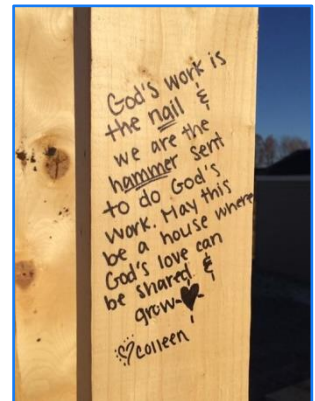 God's work is
the nail &
we are the
hammer sent
to do God's
work. May this
be a house where
God's love can
be shared &
grow-♥-
♡colleen